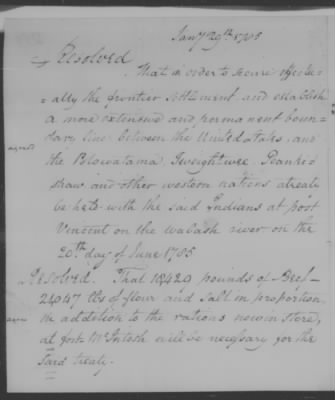 Jany 29th 1785
Resolved
That in order to secure effectu
=ally the frontier settlement and establish
a more extensive and permanent boun
dary line between the United States and
agreed
the Potowatama, Tweightwee, Peanke
shaw and other western nations a treaty
be held with the said Indians at post
Vincent on the wabash river on the
20th day of June 1785
Resolved. That 18429 pounds of Beef
24047 lbs of flour and Salt in proportion
in addition to the rations now in store,
agreed
at fort McIntosh will be necessary for the
said treaty.